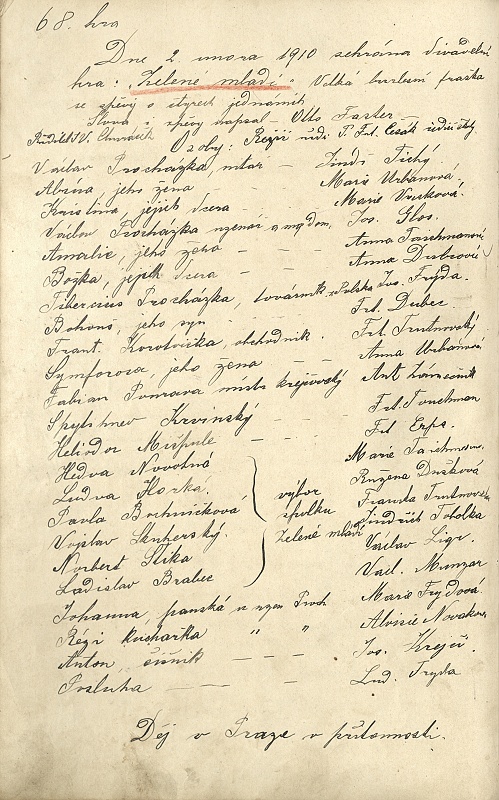 68. hra
Dne 2. února 1910 sehrána divadelní
hra: "Zelené mládí" Velká burleskní fraška
se zpěvy o čtyrech jednáních
Slova i zpěvy napsal - Otto Faster -
Ředitel V. Chvráček Osoby: Režii řídí T. Frt. Cesák
Václav Procházka, mlář - - Jindř. Tichý
Albína, jeho žena - Marie Urbanová
Kristina, jejich dcera - Marie Vrvková
Václav Procházka uzenář a maj. dom. Jos. Slos.
Amalie, jeho žena - Anna Taichmanová
Božka, jejich dcera - - Anna Dubcová
Tibercius Procházka, továrník z Polska Jos. Fryda.
Bohouš, jeho syn Frt. Dubec -
Frant. Korotvička, obchodník. Frt. Trutnovský
Symforosa, jeho žena - Anna Urbanová
Fabian Pourava mistr krejčovský Ant.
Spytihnev Krvinský - Frt. Touchman
Heliodor Mišpule - - Frt. Erps.
Hedva Novotná Marie Taichmanová
Ludva Horká. Růžena Dušková
Pavla Bochníčková výbor Frantka Trutnovská
Vojslav Skuherský. spolku Jindřich Tobolka
Norbert Stika Zelené mládí Václav Ligr.
Ladislav Brabec Václ. Munzar
Johanna, panská u uzen Proch Marie Frydová
Régi kuchařka " " Aloisie Novakova
Anton číšník - - - Jos. Krejčí.
Posluha - - Lud. Fryda
Děj v Praze v přítomnosti.